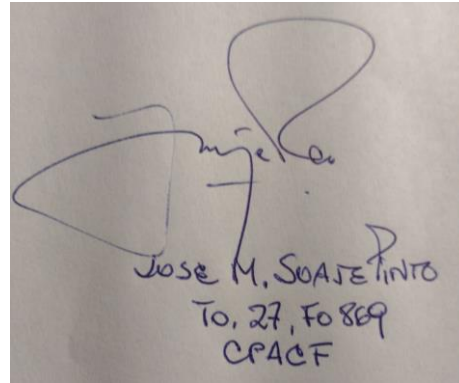 JOSE M. SOAJE PINTO
To. 27, Fo 869
CPACF